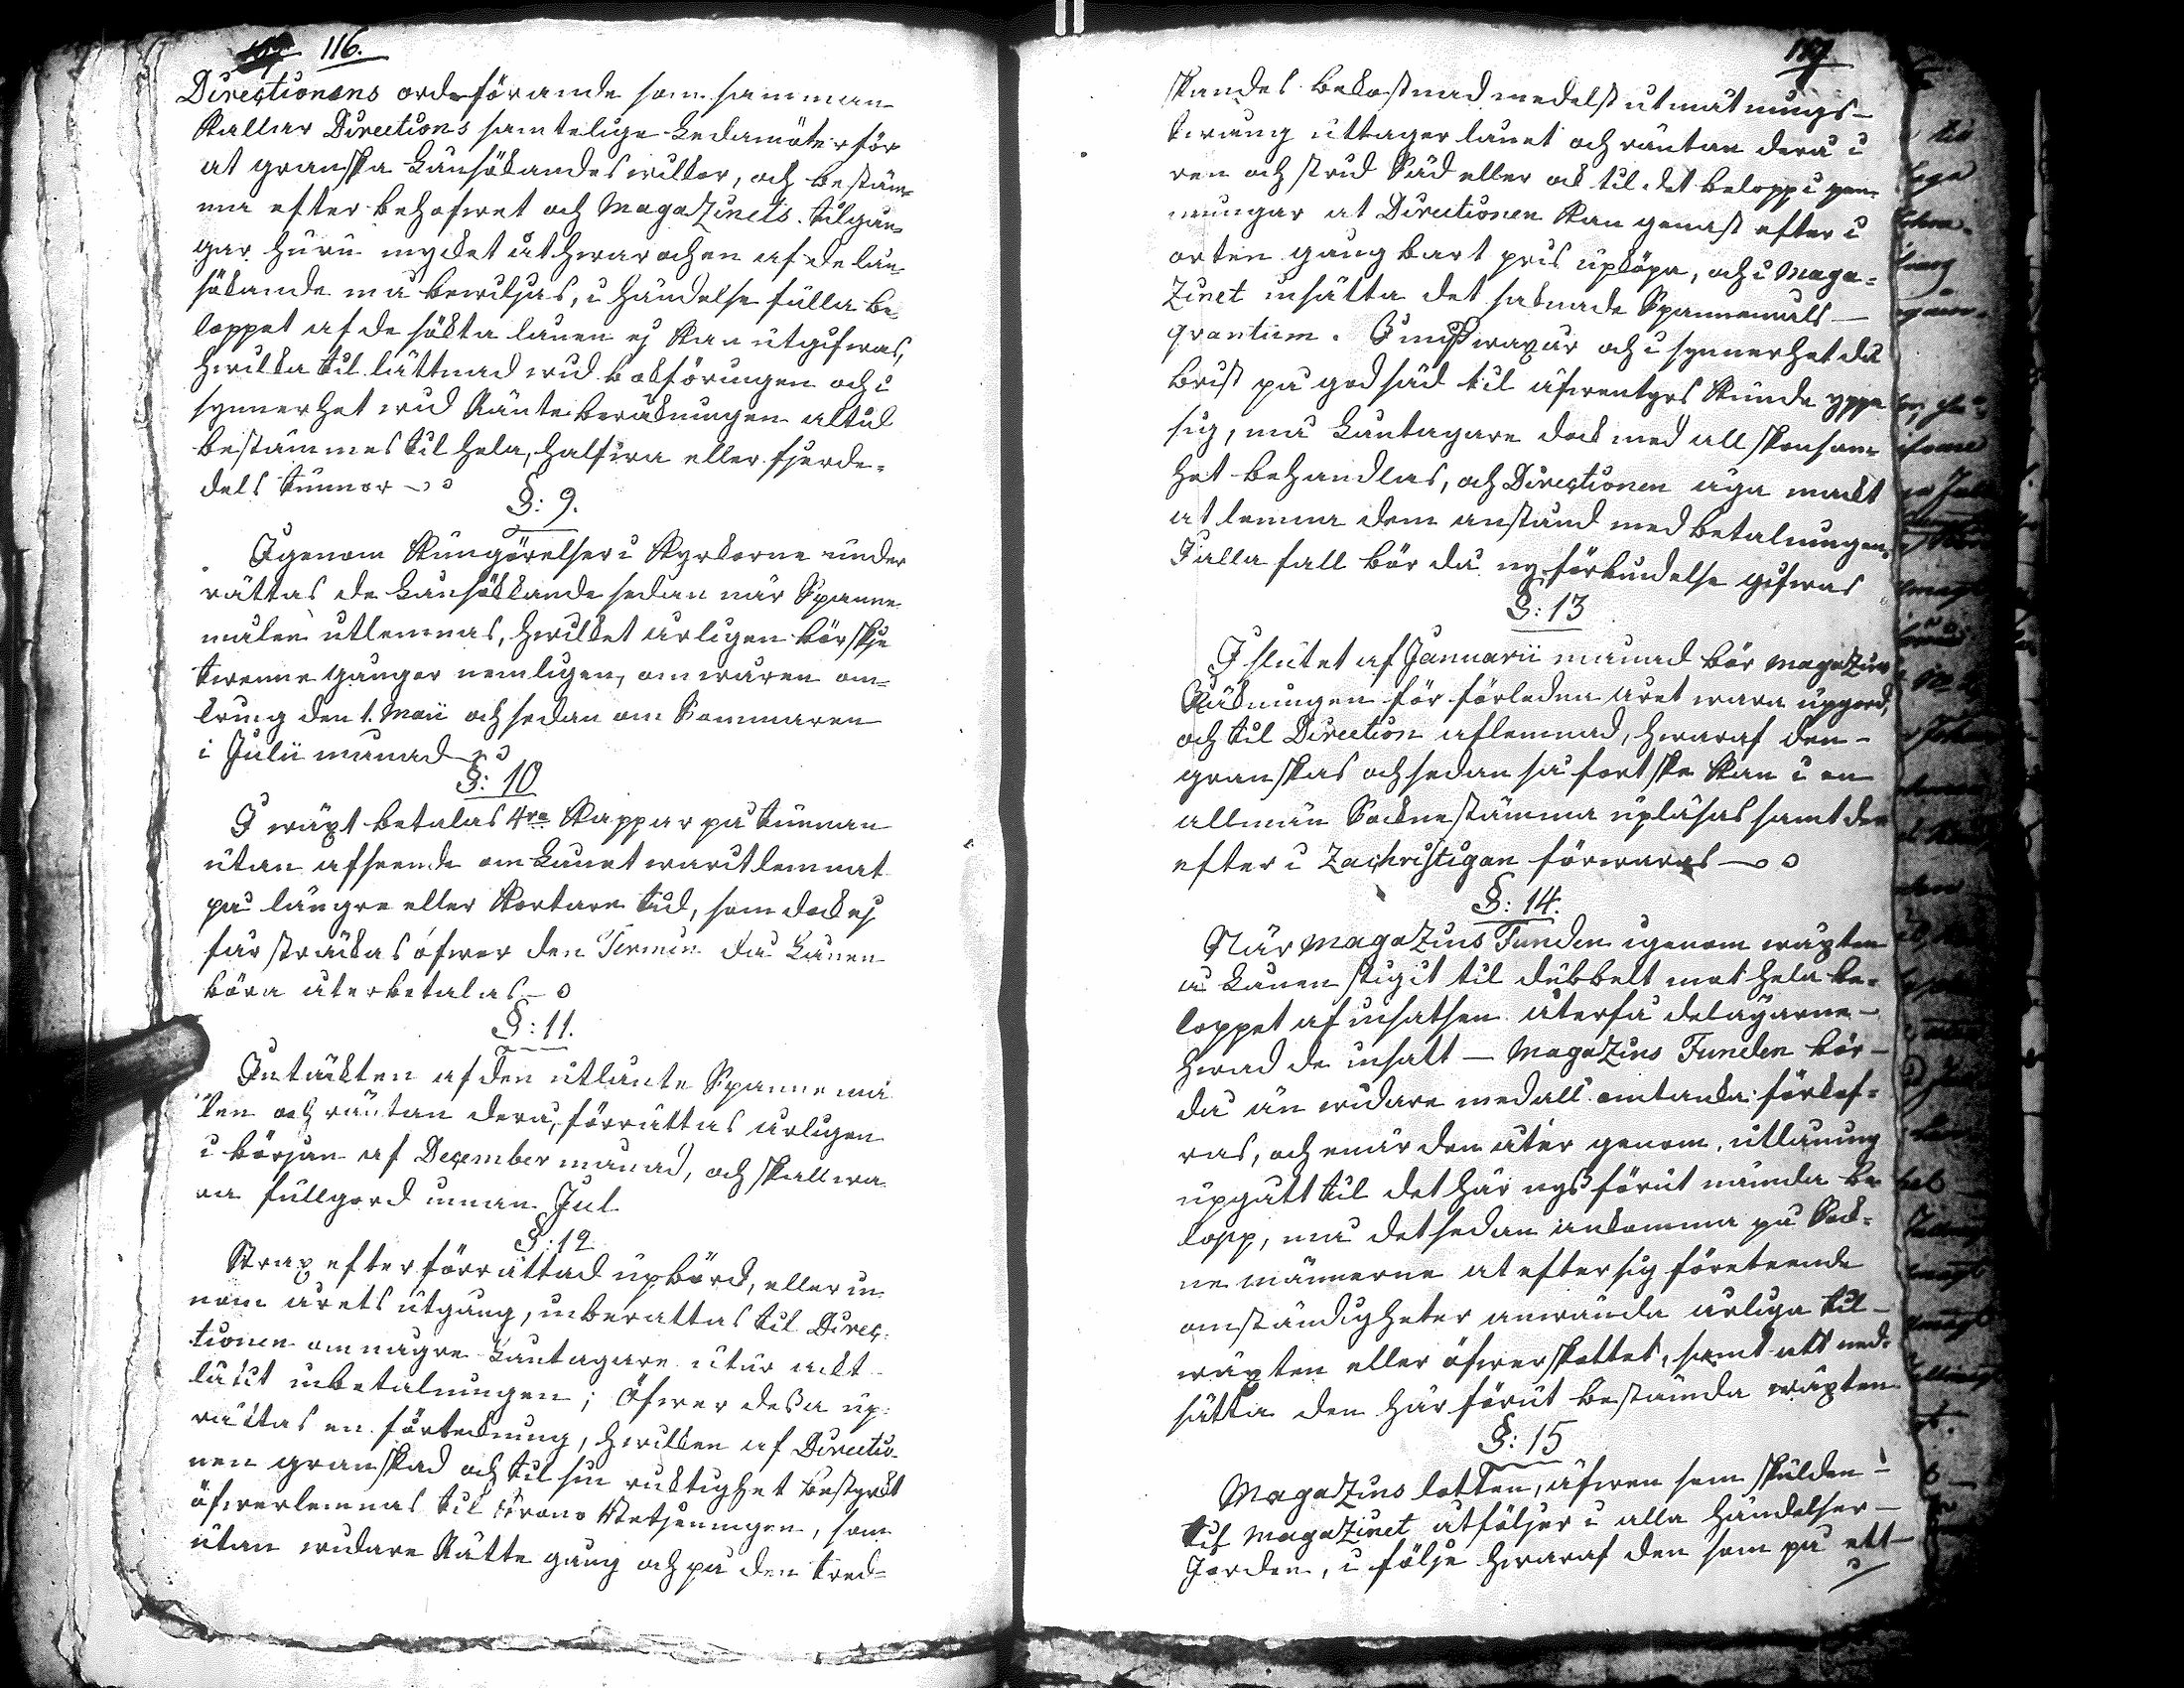 116.
Directionens ordeförande som samman
kallar Directions samtelige Ledamöter för
at granska Lånsökandes wilkor, och bestäm¬
ma efter behofwet och MagaZinets tilgån¬
gar huru mycket åt hwar och en af de lån
sökande må bewiljas, i händelse fulla be¬
loppet af de sökta lånen ej kan utgifwas,
hwilka til lättnad wid bokföringen och i
synnerhet wid Ränte beräkningen altid
bestämmes til hela, halfwa eller fjerde¬
dels tunnor
§: 9.
Igenom Kungörelser i Kyrkorne under
rättas de Lånsökande sedan när Spanne
målen utlemnas, hwilket årligen bör ske
twenne gånger nemligen, om wåren om¬
kring den 1. Maii och sedan om Sommaren
i Julii månad
§: 10
I wäxt betalas 4ra Kappar på tunnan
utan afseende om Lånet warit lemnat
på längre eller kortare tid, som dock ej
får sträckas öfwer den Termin då Lånen
böra återbetalas
§: 11.
Intäkten af den utlånte Spannemå
len och räntan derå, förrättas årligen
i början af December månad, och skall wa
ra fullgord innan Jul
§: 12
Strax efter förrättad upbörd, eller in
nom årets utgång, inberättas til Direc¬
tionen om någre Låntagare utur akt
låtit inbetalningen; Öfwer desa up¬
rättas en förteckning, hwilken af Directio¬
nen granskad och til sin riktighet bestyrkt
öfwerlemnas til Krono Betjeningen, som
utan widare Rätte gång och på den tred¬
117
skandes bekostnad medelst utmätnings¬
twång uttager lånet och räntan derå i
ren och strid Säd eller ock til det belopp i pen¬
ningar at Directionen kan genast efter i
orten gångbart pris upköpa, och i Maga¬
Zinet insätta det saknade Spannemåls
qvantum. I missväxtår och i synnerhet då
brist på god säd til äfwentyrs kunde yppa
sig, må Låntagare dock med all skonsam
het behandlas, och Directionen äga makt
at lemna dem anstånd med betalningen,
I alla fall bör då ny förbindelse gifwas
§: 13
I slutet af Januarii månad bör MagaZins
Räkningen för förledna året wara upgord,
och til Direction aflemnad, hwaraf den
granskas och sedan så fort ske kan i en
allmän Sockne stämma upläsas samt der
efter i Zachristigan förwaras
§: 14.
När MagaZins Funden igenom wäxten
å Lånen stigit til dubbelt mot hela be¬
loppet af insatsen återfå delägarne
hwad de insatt — MagaZins Funden bör
då än widare med all omtanka förkof¬
ras, och enär den åter genom utlåning
upgått til det här nyss förut nämda be
lopp, må det sedan ankomma på Sock¬
ne männerne at efter sig företeende
omständigheter använda årliga til
wäxten eller öfwerskottet, samt att ned¬
sätta den här förut bestämda wäxten
§: 15
MagaZins lotten, äfwen som skulden
til MagaZinet åtföljer i alla händelser
Jorden, i följe hwaraf den som på ett